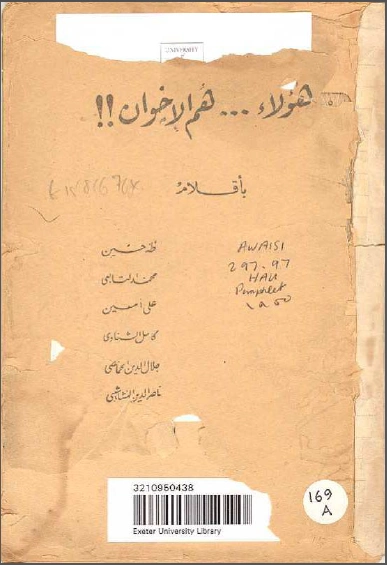 UNIVERSITY
هؤلاء ... هم الإخوان !!
بأقلام
طه حسين
محمد التابعي
علي أمين
كامل الشناوي
جلال الدين الحمامصي
ناصر الدين النشاشيبي
AWAISI
297.97
HAU
Pamphlet
3210950438
Exeter University Library
169
A